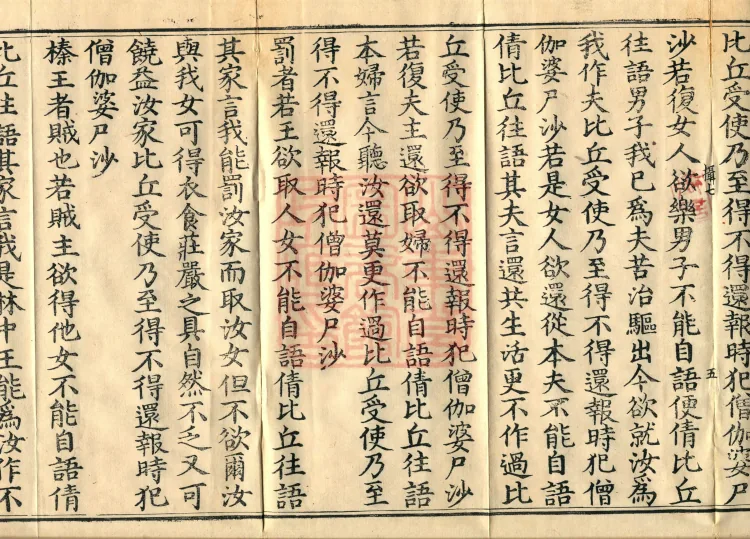 比丘受使乃至得不得還報時犯僧伽婆尸
攝七
五
沙若復女人欲樂男子不能自語便倩比丘
往語男子我已爲夫苦治驅出今欲就汝爲
我作夫比丘受使乃至得不得還報時犯僧
伽婆尸沙若是女人欲還從本夫不能自語
倩比丘往語其夫言還共生活更不作過比
丘受使乃至得不得還報時犯僧伽婆尸沙
若復夫主還欲取婦不能自語倩比丘往語
本婦言今聽汝還莫更作過比丘受使乃至
得不得還報時犯僧伽婆尸沙
罰者若王欲取人女不能自語倩比丘往語
其家言我能罰汝家而取汝女但不欲爾汝
與我女可得衣食莊嚴之具自然不乏又可
饒益汝家比丘受使乃至得不得還報時犯
僧伽婆尸沙
榛王者賊也若賊主欲得他女不能自語倩
比丘往語其家言我是林中王能爲汝作不